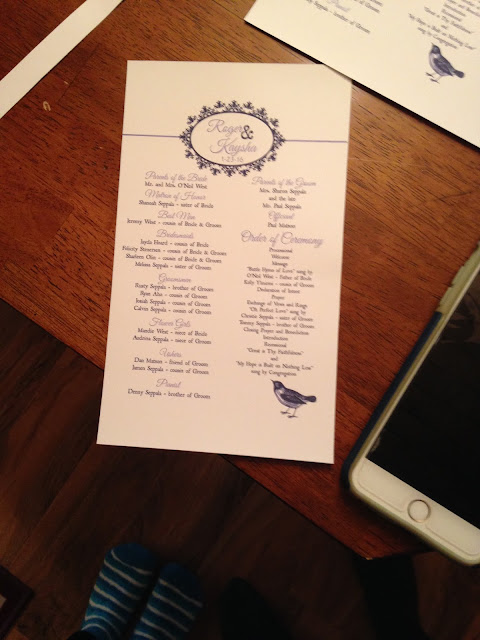 Roger
&
Kaysha
1-23-16
Parents of the Bride
Mr. and Mrs. O'Niel West
Matron of Honor
Shannah Seppala - sister of Bride
Best Man
Jeremy West - cousin of Bride & Groom
Bridesmaids
Jayda Heard - cousin of Bride
Felicity Stouvran - cousin of Bride & Groom
Sharleen Olin - cousin of Bride & Groom
Melissa Seppala - sister of Groom
Groomsmen
Rusty Seppala - brother of Groom
Ryan Aho - cousin of Groom
Josiah Seppala - cousin of Groom
Calvin Seppala - cousin of Groom
Flower Girls
Maralie West - niece of Bride
Andrina Seppala - niece of Groom
Ushers
Dan Matson - friend of Groom
James Seppala - cousin of Groom
Pianist
Denny Seppala - brother of Groom
Parents of the Groom
Mrs. Sharon Seppala
and the late
Mr. Paul Seppala
Officiant
Paul Matson
Order of Ceremony
Processional
Welcome
Message
"Battle Hymn of Love" sung by
O'Niel West - Father of Bride
Kelly Ylioainu - cousin of Groom
Declaration of Intent
Prayer
Exchange of Vows and Rings
"Oh Perfect Love" sung by
Christin Seppala - sister of Groom
Tommy Seppala - brother of Groom
Closing Prayer and Benediction
Introduction
Recessional
"Great is Thy Faithfulness"
and
"My Hope is Built on Nothing Less"
sung by Congregation
Pianist
Seppala - brother of Groom
Introduction
Recessional
"Great is Thy Faithfulness"
and
"My Hope is Built on Nothing Less"
sung by Congregation